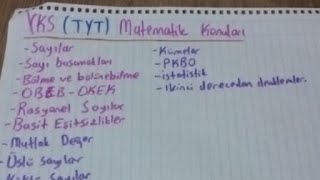 YKS (TYT) Matematik Konuları
-Sayılar
-Sayı basamakları
-Bölme ve bölünebilme
-OBEB-OKEK
-Rasyonel Sayılar
-Basit Eşitsizlikler
-Mutlak Değer
-Üslü sayılar
-Köklü Sayılar
-Kümeler
-PKBO
-istatistik
-ikinci dereceden denklemler.